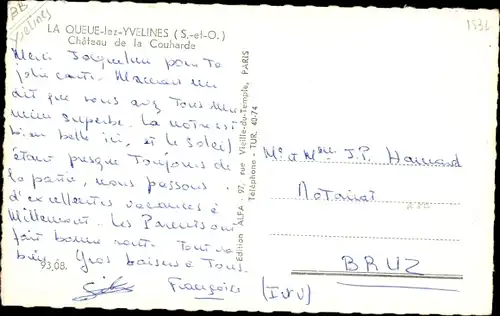 BB
Yvelines
1536
LA QUEUE-lez-YVELINES (S.-et-O.)
Château de la Couharde
Merci Jacqueline pour ta
jolie carte. Maman me
dit que vous avez tous une
mine superbe. La nôtre est
bien belle ici, et le soleil
étant presque toujours de
la partie, nous passons
d'excellentes vacances à
Millemont. Les Parisiens
font bonne route. Tout va
bien. Gros baisers à Tous.
93.08.
Françoise
Edition ALFA - 97, rue Vieille-du-Temple, PARIS
Téléphone - TUR. 40-74
Mr et Mme J.P. Hamard
Notariat
BRUZ
(I et V)